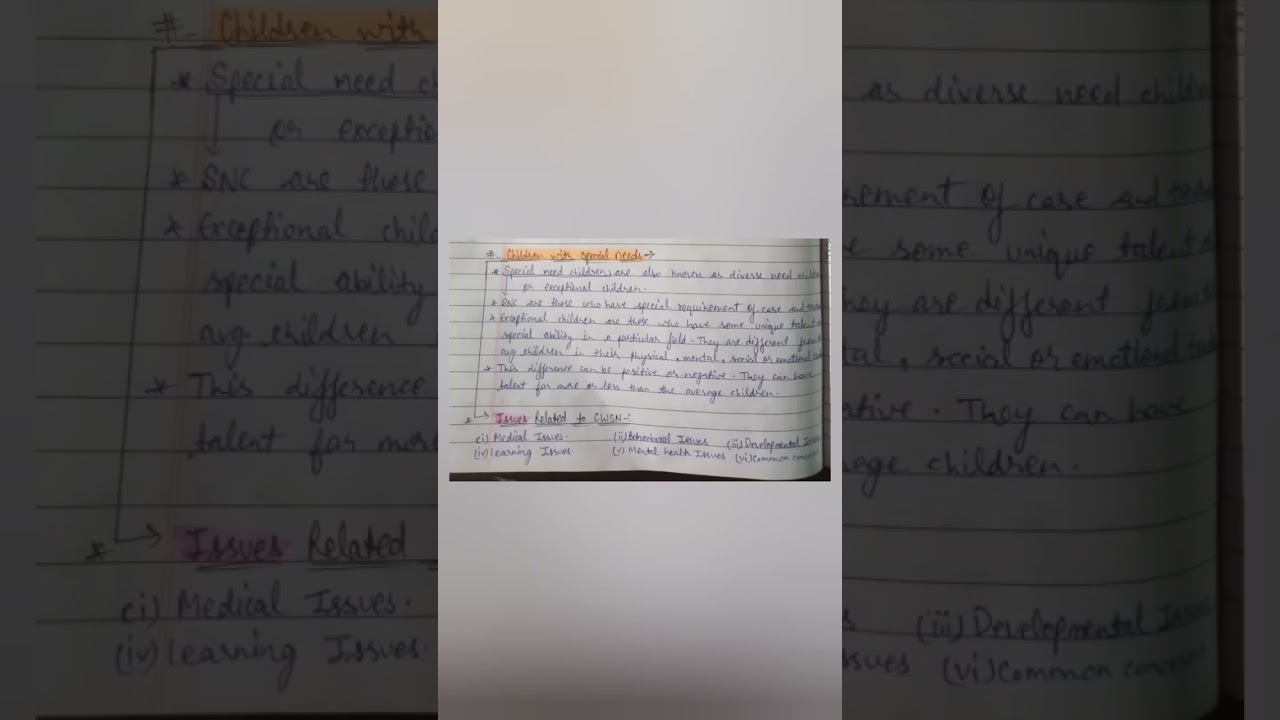 #- Children with special needs →
* Special need children, are also known as diverse need children
or exceptional children.
* SNC are those who have special requirement of case and
* Exceptional children are those who have some unique talent
special ability in a particular field. They are different from
avg. children in their physical, mental, social or emotional
* This difference can be positive or negative. They can have
talent far more or less than the average children.
* → Issues Related to CWSN-:
(i) Medical Issues. (ii) Behavioural Issues (iii) Developmental Issues
(iv) Learning Issues. (v) Mental health Issues (vi) Common